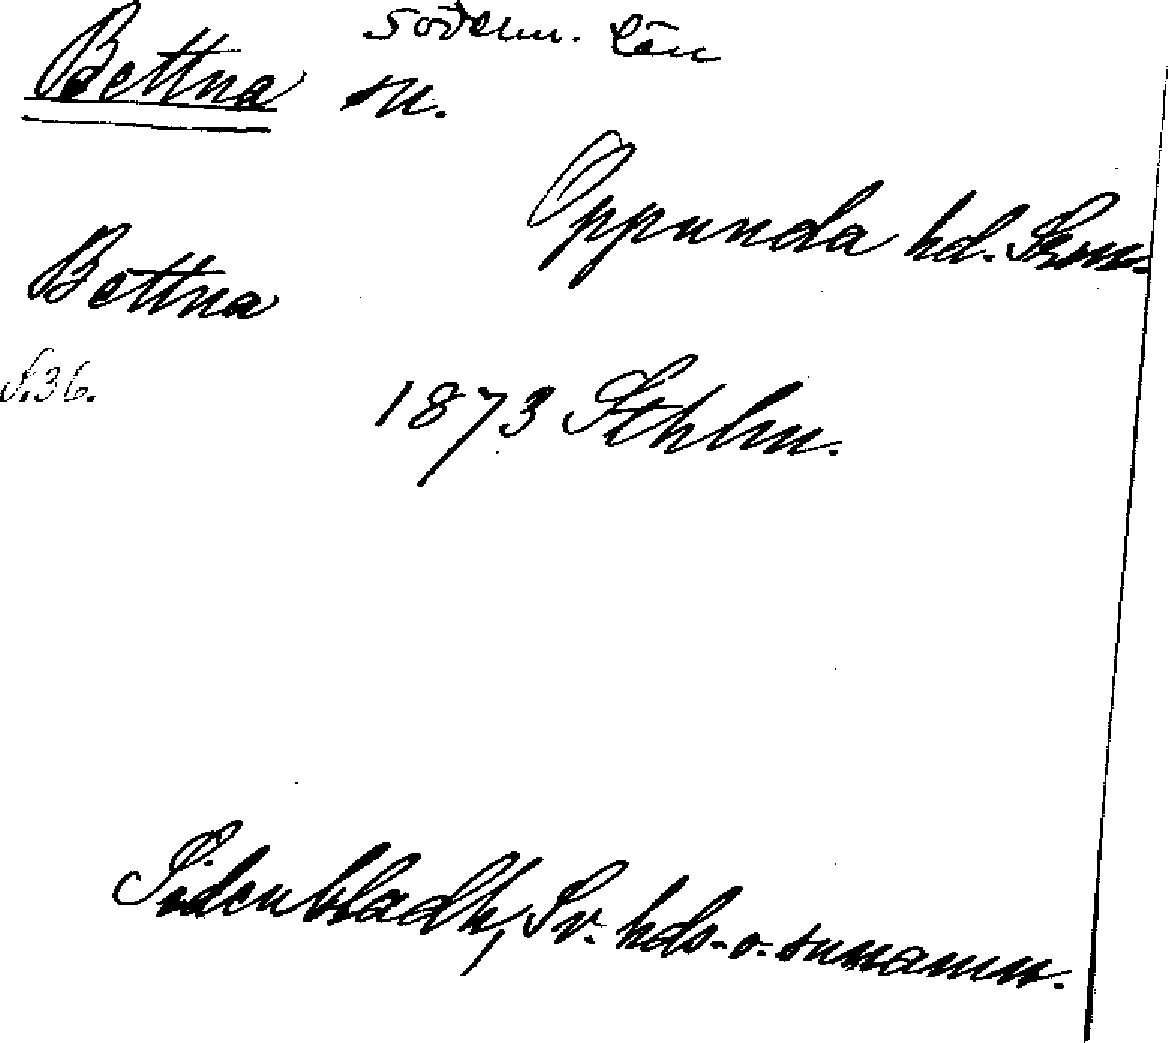 Bettna sn. Söderm. Län
Oppunda hd. Srm.
Bettna
S.36.
1873 Sthlm.
Sidenbladh, Sv. hds- o. snnamn.